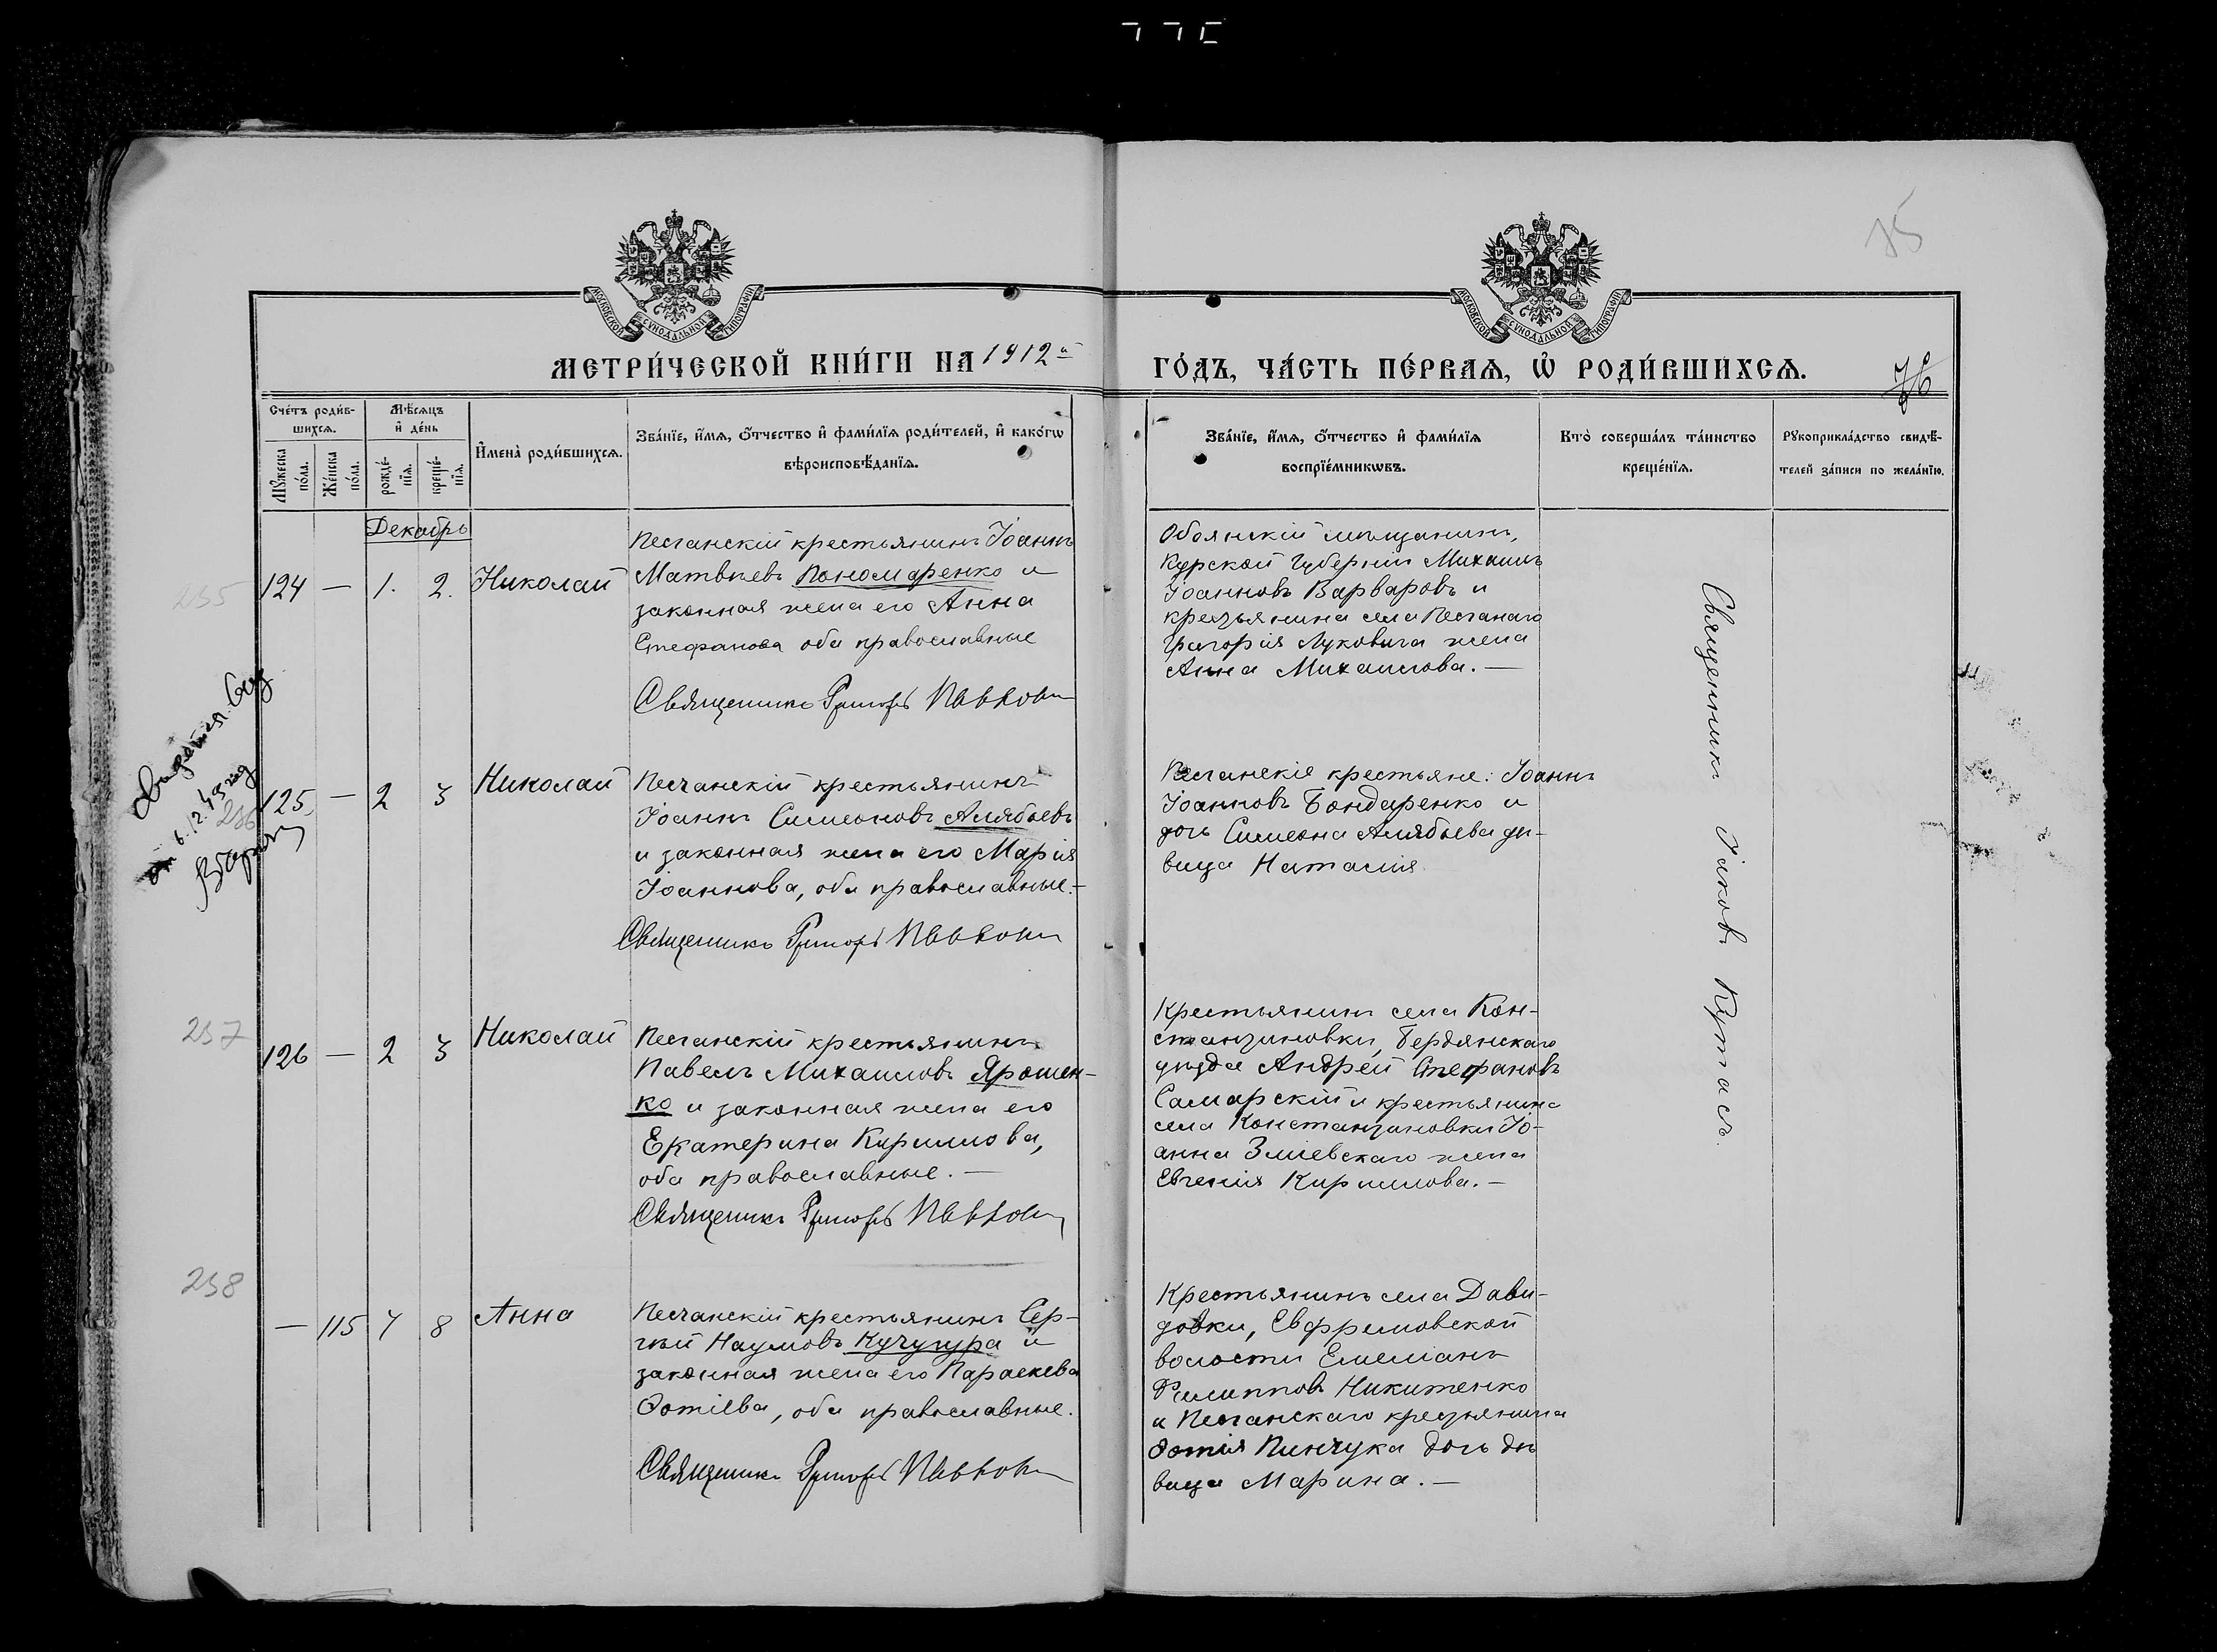 75
МОСКОВСКОЙ СѴНОДАЛЬНОЙ ТИПОГРАФІИ
МОСКОВСКОЙ СѴНОДАЛЬНОЙ ТИПОГРАФІИ
МЕТРИ́ЧЕСКОЙ КНИ́ГИ НА 1912й
ГО́ДЪ, ЧА́СТЬ ПЕ́РВАѦ, Ѿ РОДИ́ВШИХСѦ.
76
Сче́тъ роди́в-
шихсѧ.
Мѣ́сѧцъ
и҆ де́нь
Мꙋ́жеска по́ла.
Же́нска по́ла.
рожде́-
нїѧ.
креще́-
нїѧ.
И҆мена̀ роди́вшихсѧ.
Зва́нїе, и҆́мѧ, ѻ҆́тчество и҆ фами́лїѧ роди́телей, и҆ како́гѡ
вѣроисповѣ́данїѧ.
Зва́нїе, и҆́мѧ, ѻ҆́тчество и҆ фами́лїѧ
воспрїе́мникѡвъ.
Кто̀ соверша́лъ та́инство
креще́нїѧ.
Рꙋкоприкла́дство свидѣ́-
телей за́писи по жела́нїю.
Декабрь
235
124 — 1. 2. Николай
Песчанскій крестьянинъ Іоаннъ
Матвѣевъ Пономаренко и
законная жена его Анна
Стефанова оба православные
Священникъ Григорій
Обоянскій мѣщанинъ,
Курской Губерніи Михаилъ
Іоанновъ Варваровъ и
крестьянина села Песчанаго
Григорія Луковича жена
Анна Михаилова. —
Священникъ Іаковъ
236
125 — 2 3 Николай
Песчанскій крестьянинъ
Іоаннъ Симеоновъ Алябьевъ
и законная жена его Марія
Іоаннова, оба православные. —
Священникъ Григорій
Песчанскіе крестьяне: Іоаннъ
Іоанновъ Бондаренко и
дочь Симеона Алябьева дѣ-
вица Наталія
237
126 — 2 3 Николай
Песчанскій крестьянинъ
Павелъ Михаиловъ Ярошен-
ко и законная жена его
Екатерина Кириллова,
оба православные. —
Священникъ Григорій
Крестьянинъ села Кон-
стантиновки, Бердянскаго
уѣзда Андрей Стефановъ
Самарскій и крестьянина
села Константиновки Іо-
анна Зміевскаго жена
Евгенія Кириллова. —
238
— 115 7 8 Анна
Песчанскій крестьянинъ Сер-
гѣй Наумовъ Кучугура и
законная жена его Параскева
Фотіева, оба православные.
Священникъ Григорій
Крестьянинъ села Дави-
довки, Евфремовской
волости Емеліанъ
Филипповъ Никитенко
и Песчанскаго крестьянина
Фотія Пинчука дочь дѣ
вица Марина. —